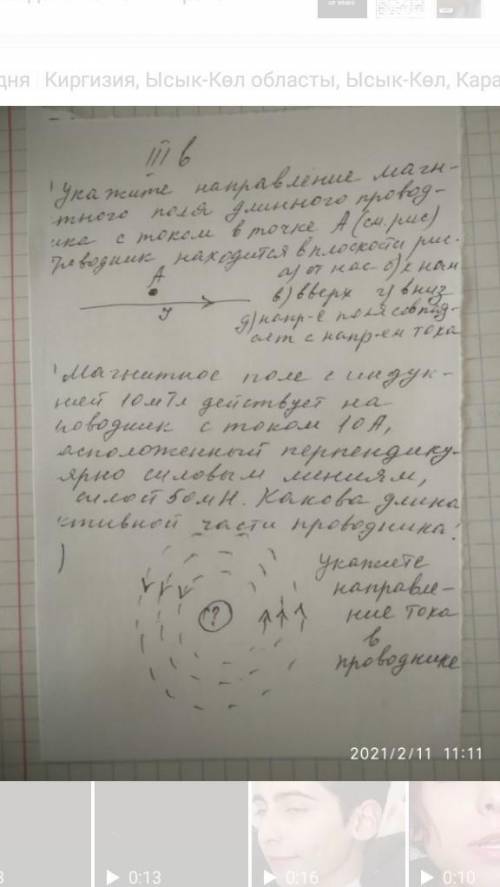 дня Киргизия, Ысык-Көл областы, Ысык-Көл, Кара
III в
Укажите направление магн-
тного поля длинного провод-
ика с током в точке А (см. рис)
Проводник находится в плоскости рис.
а) от нас б) к нам
А
в) вверх г) вниз
д) напр-е поля совпад-
ает с напр-ем тока
Магнитное поле с индук-
цией 10мТл действует на
проводник с током 10А,
асположенный перпендику-
лярно силовым линиям,
силой 50мН. Какова длина
ктивной части проводника?
)
Укажите
направле-
?
ние тока
в
проводнике
2021/2/11 11:11
0:13
0:16
0:10